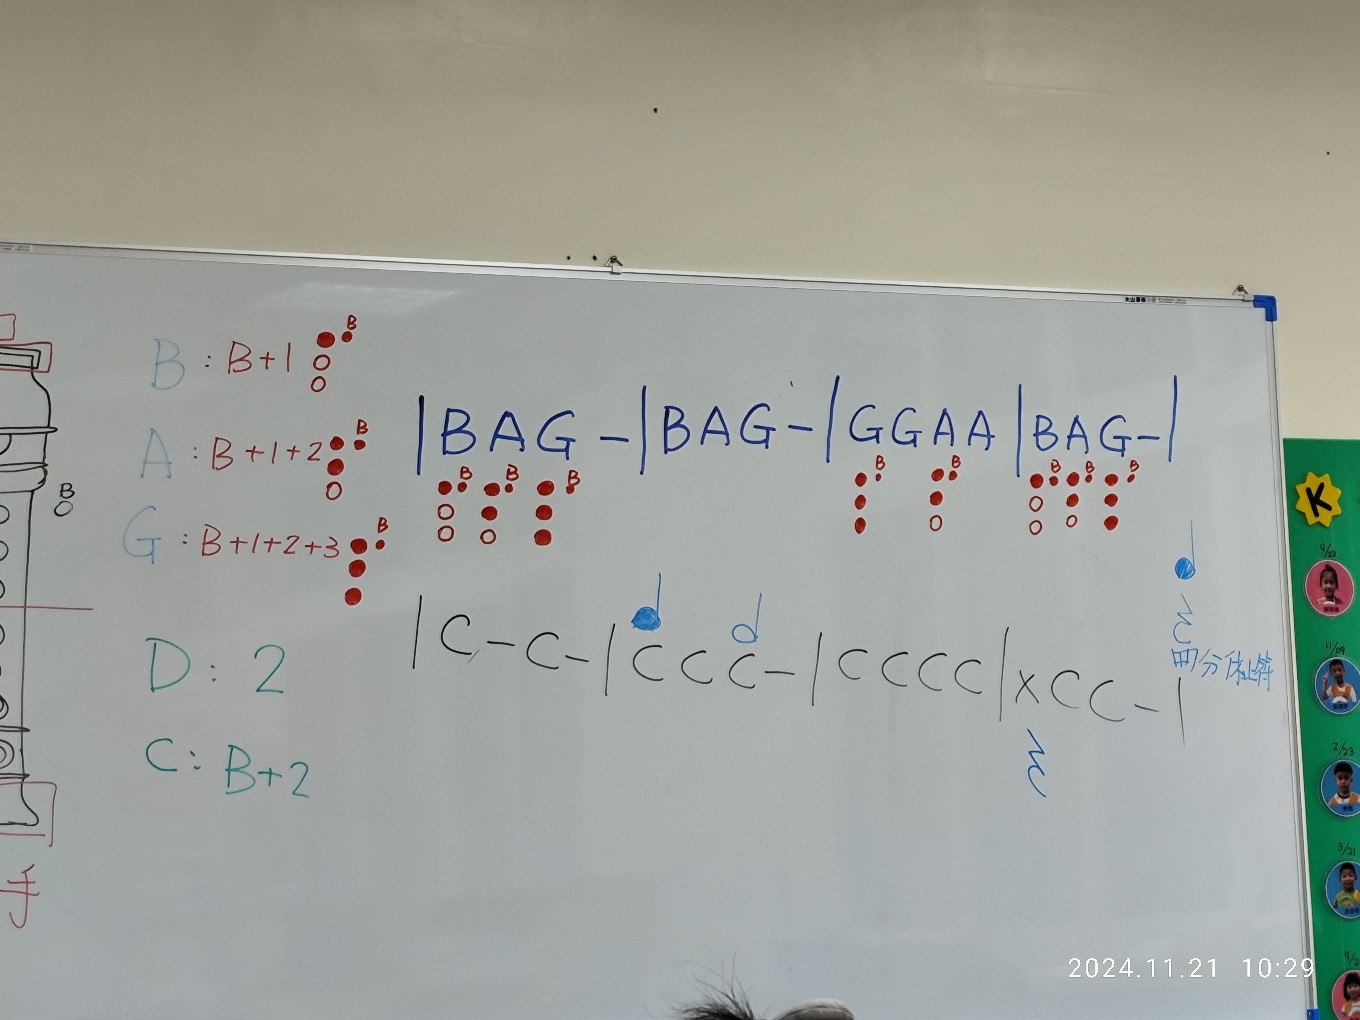 B : B+1 B
A : B+1+2 B
G : B+1+2+3 B
D : 2
C : B+2
B
手
|BAG-|BAG-|GGAA|BAG-|
B B B B B B B B
|C-C-|CCC-|CCCC|xCC-|
四分休止符
K
9/23
11/09
2/23
3/21
2024.11.21 10:29